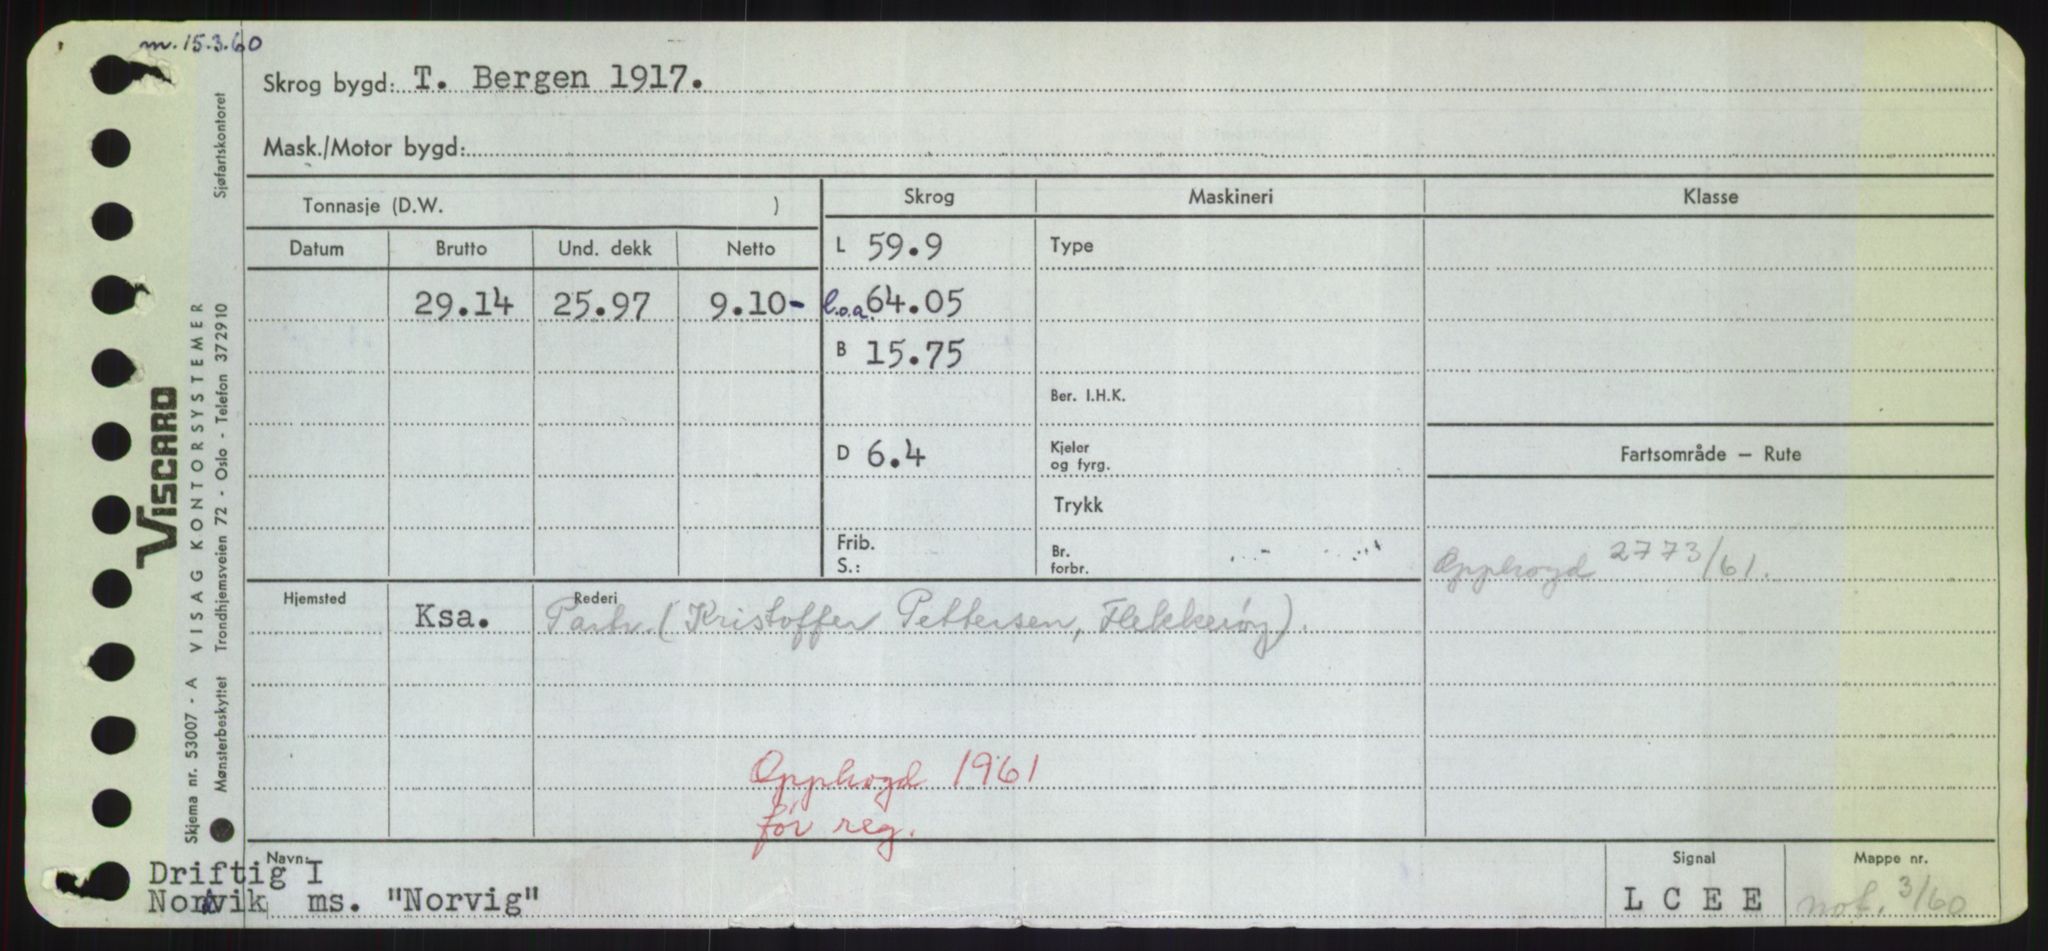 m. 15.3.60
Skrog bygd: T. Bergen 1917.
Mask./Motor bygd:
Tonnasje (D.W. )
Skrog
Maskineri
Klasse
Datum Brutto Und. dekk Netto
L 59.9
Type
29.14 25.97 9.10-
l.o.a. 64.05
B 15.75
Ber. I.H.K.
D 6.4
Kjeler
og fyrg.
Fartsområde – Rute
Trykk
Frib.
S.:
Br.
forbr.
Opphogd 2773/61.
Hjemsted
Ksa.
Rederi
Partr. (Kristoffer Pettersen, Flekkerøy).
Opphogd 1961
før reg.
Navn:
Driftig I
Norvik ms. "Norvig"
Signal
L C E E
Mappe nr.
not. 3/60
Sjøfartskontoret
VISCARD
Skjema nr. 53007 - A VISAG KONTORSYSTEMER
Mønsterbeskyttet Trondhjemsveien 72 - Oslo - Telefon 372910